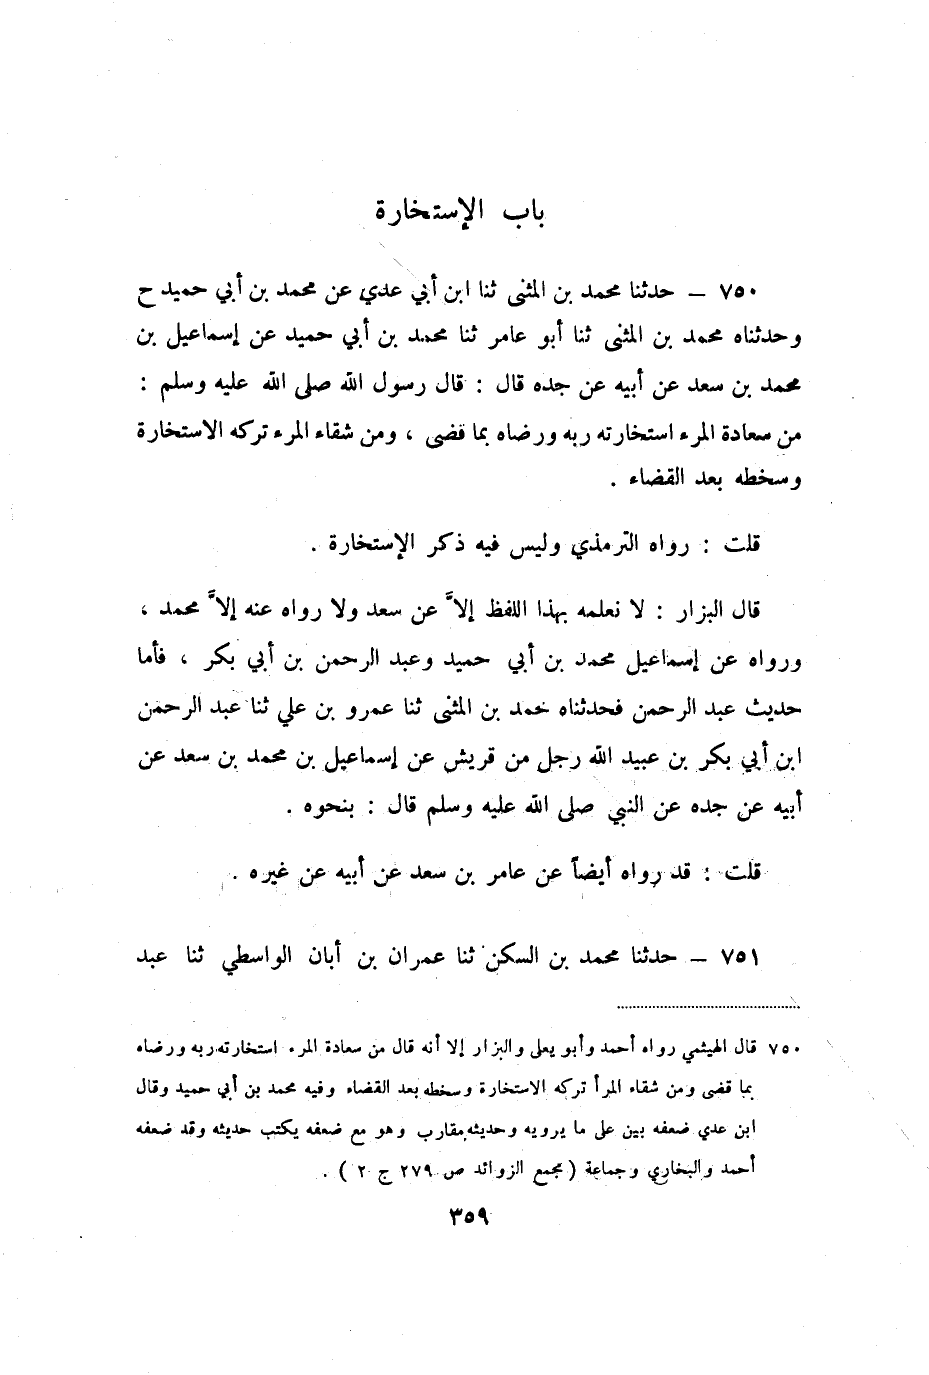 باب الإستخارة
٧٥٠ – حدثنا محمد بن المثنى ثنا ابن أبي عدي عن محمد بن أبي حميد ح
وحدثناه محمد بن المثنى ثنا أبو عامر ثنا محمد بن أبي حميد عن إسماعيل بن
محمد بن سعد عن أبيه عن جده قال : قال رسول الله صلى الله عليه وسلم :
من سعادة المرء استخارته ربه ورضاه بما قضى ، ومن شقاء المرء تركه الاستخارة
وسخطه بعد القضاء .
قلت : رواه الترمذي وليس فيه ذكر الإستخارة .
قال البزار : لا نعلمه بهذا اللفظ إلاَّ عن سعد ولا رواه عنه إلاَّ محمد ،
ورواه عن إسماعيل محمد بن أبي حميد وعبد الرحمن بن أبي بكر ، فأما
حديث عبد الرحمن فحدثناه محمد بن المثنى ثنا عمرو بن علي ثنا عبد الرحمن
ابن أبي بكر بن عبيد الله رجل من قريش عن إسماعيل بن محمد بن سعد عن
أبيه عن جده عن النبي صلى الله عليه وسلم قال : بنحوه .
قلت : قد رواه أيضاً عن عامر بن سعد عن أبيه عن غيره .
٧٥١ – حدثنا محمد بن السكن ثنا عمران بن أبان الواسطي ثنا عبد
٧٥٠ قال الهيثمي رواه أحمد وأبو يعلى والبزار إلا أنه قال من سعادة المرء استخارته ربه ورضاه
بما قضى ومن شقاء المرأ تركه الاستخارة وسخطه بعد القضاء وفيه محمد بن أبي حميد وقال
ابن عدي ضعفه بين على ما يرويه وحديثه مقارب وهو مع ضعفه يكتب حديثه وقد ضعفه
أحمد والبخاري وجماعة ( مجمع الزوائد ص ٢٧٩ ج ٢ ) .
٣٥٩